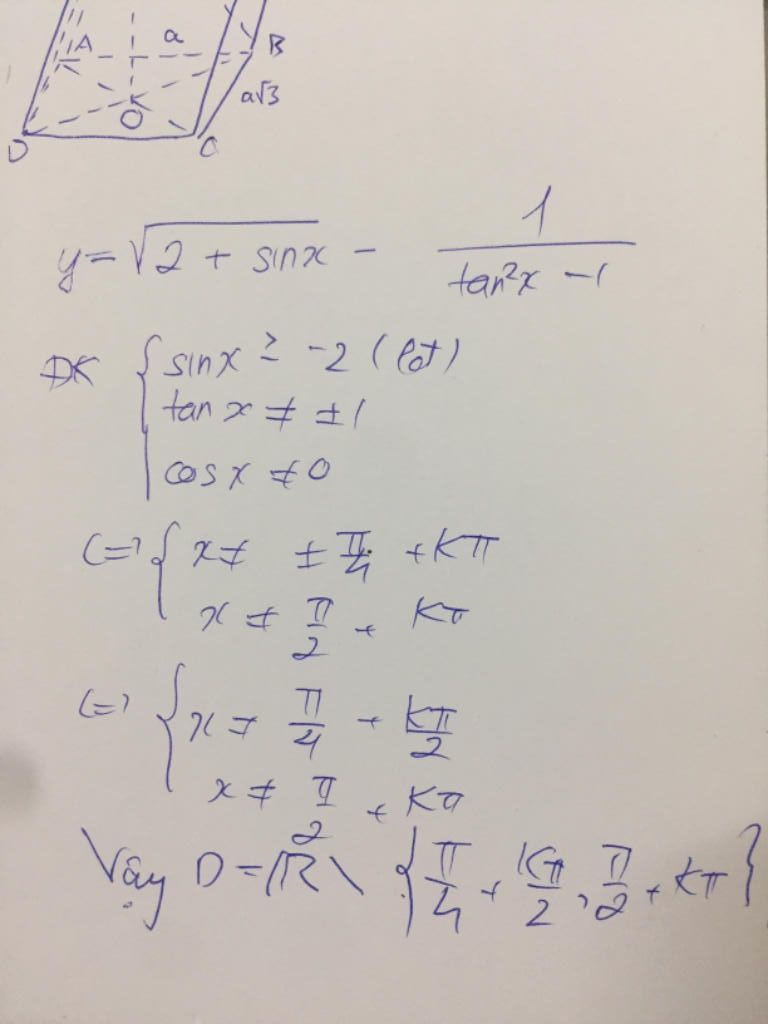 A a B
a√3
O
D C
y = √(2 + sinx) - 1/(tan²x - 1)
ĐK { sinx ≥ -2 (lđ)
tan x ≠ ±1
cos x ≠ 0
<=> { x ≠ ± π/4 + kπ
x ≠ π/2 + kπ
<=> { x ≠ π/4 + kπ/2
x ≠ π/2 + kπ
Vậy D = ℝ \ { π/4 + kπ/2 , π/2 + kπ }